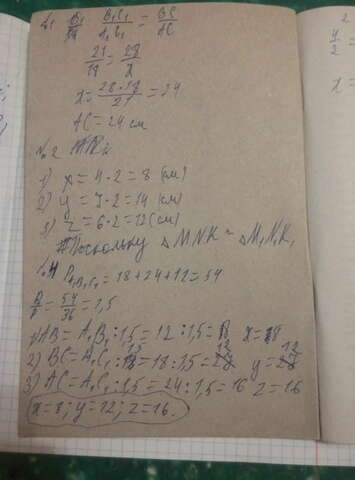 B₁C₁/A₁C₁ = BC/AC
21/18 = 28/x
x = 28·18/21 = 24
AC = 24 см
№2
1) x = 4·2 = 8 (см)
2) y = 7·2 = 14 (см)
3) z = 6·2 = 12 (см)
Поскольку △MNK ~ △M₁N₁K₁
P A₁B₁C₁ = 18+24+12=54
54/36 = 1,5
1) AB = A₁B₁ : 1,5 = 12 : 1,5 = 8 x=8
2) BC = 18 : 1,5 = 12 y = 12
3) AC = A₁C₁ : 1,5 = 24 : 1,5 = 16 z = 16
x=8; y=12; z=16.
y/2 =
x =